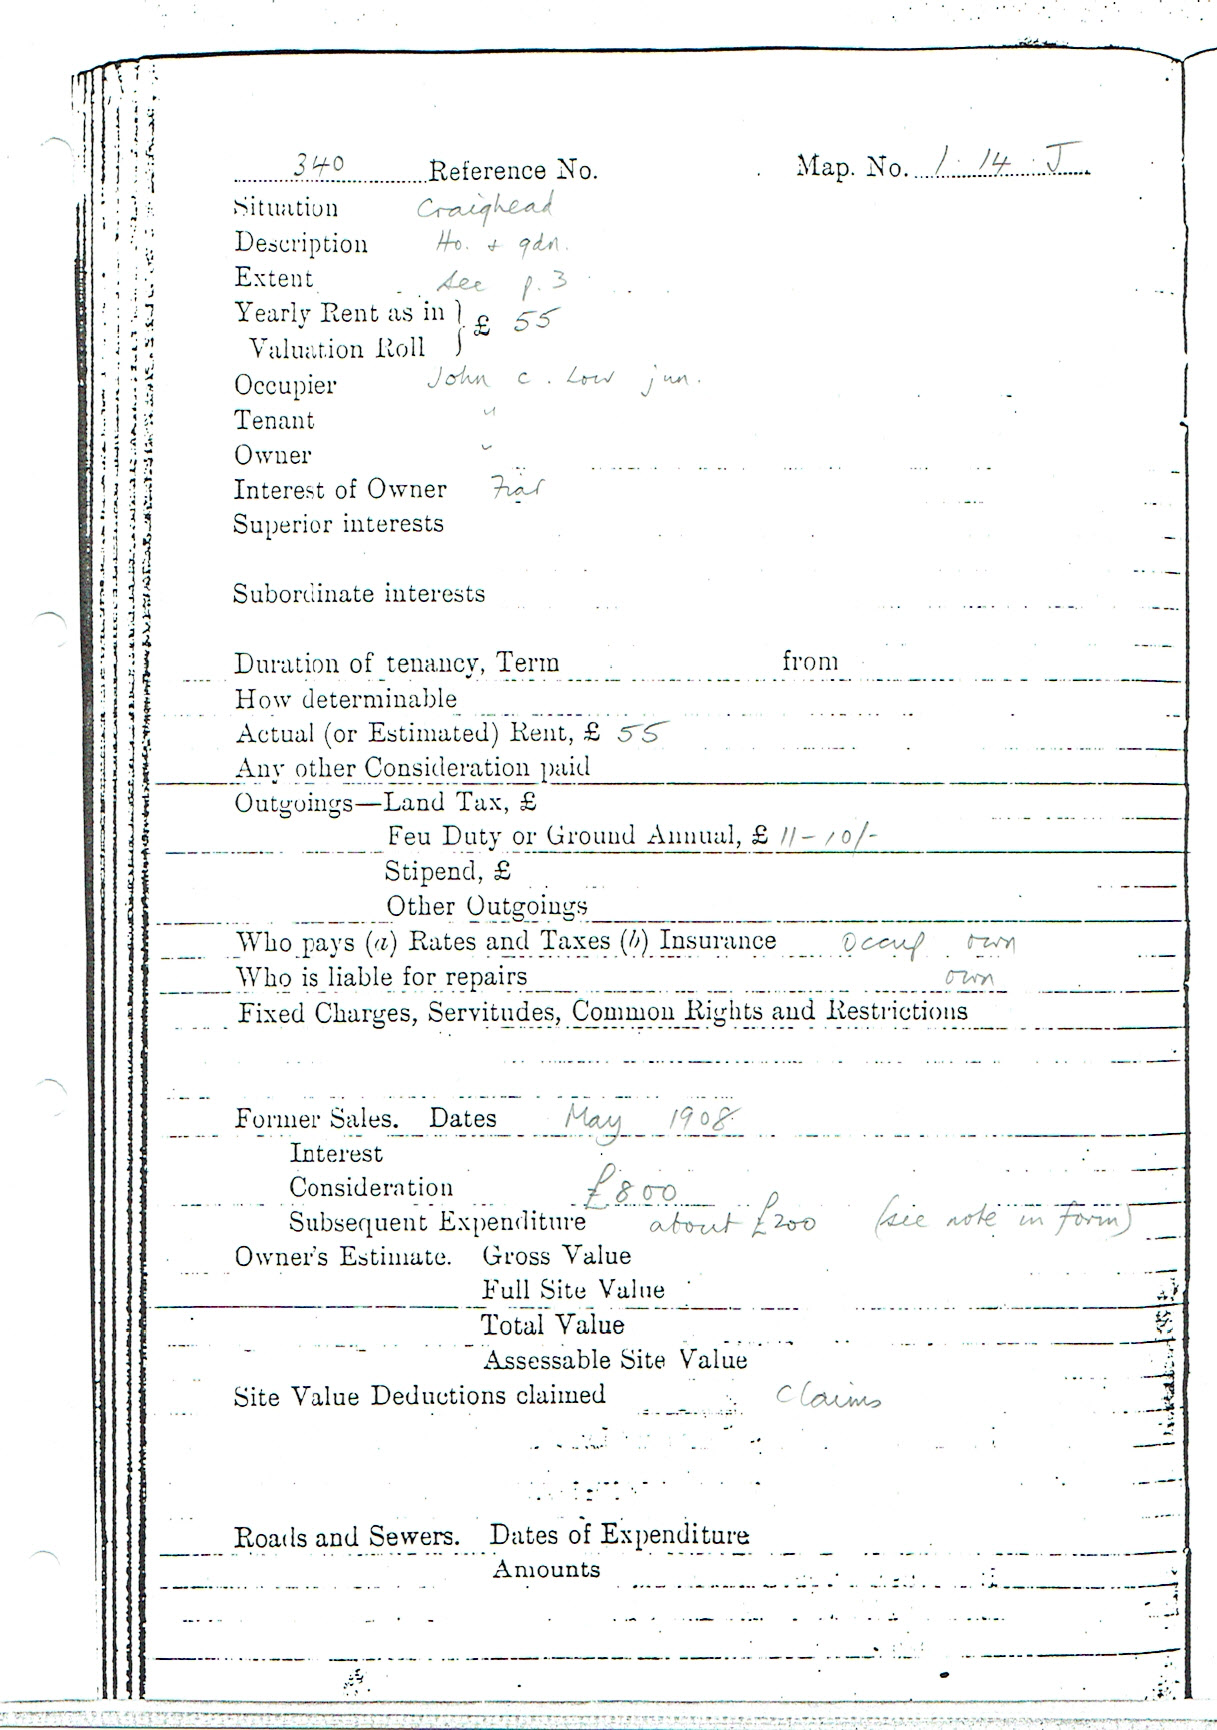 340 Reference No. Map. No. 1. 14. J
Situation Craighead
Description Ho. + gdn.
Extent See p. 3
Yearly Rent as in } £ 55
Valuation Roll
Occupier John C. Low jun.
Tenant "
Owner "
Interest of Owner Fiar
Superior interests
Subordinate interests
Duration of tenancy, Term from
How determinable
Actual (or Estimated) Rent, £ 55
Any other Consideration paid
Outgoings—Land Tax, £
Feu Duty or Ground Annual, £ 11-10/-
Stipend, £
Other Outgoings
Who pays (a) Rates and Taxes (b) Insurance Occup own
Who is liable for repairs own
Fixed Charges, Servitudes, Common Rights and Restrictions
Former Sales. Dates May 1908
Interest
Consideration £800
Subsequent Expenditure about £200 (see note in form)
Owner's Estimate. Gross Value
Full Site Value
Total Value
Assessable Site Value
Site Value Deductions claimed Claims
Roads and Sewers. Dates of Expenditure
Amounts